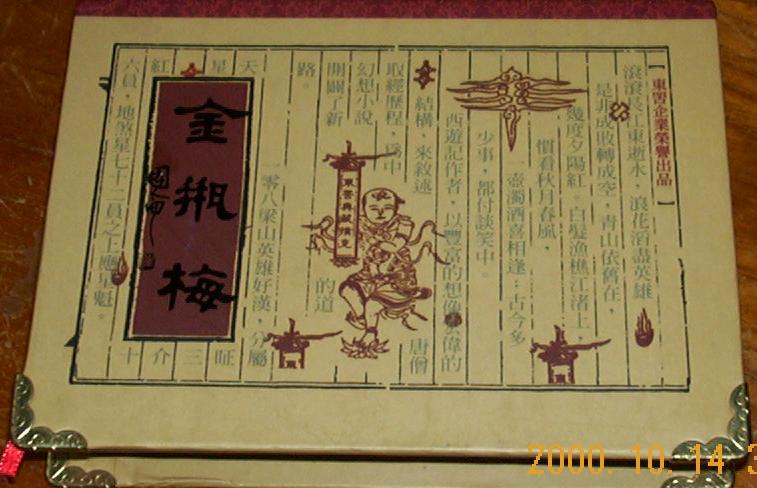 【東罾企業榮譽出品】
滾滾長江東逝水，浪花淘盡英雄
是非成敗轉成空，青山依舊在，
幾度夕陽紅。白髮漁樵江渚上，
慣看秋月春風，
一壺濁酒喜相逢：古今多
少事，都付談笑中。
西遊記作者，以豐富的想像 偉的
結構，來敘述 唐僧
取經歷程，為中
幻想小說
開闢了新
的道
路。
東罾典藏撲克
一零八梁山英雄好漢，分屬
天星 紅
金瓶梅
三 介 十
六員，地煞星七十二員之上應星魁。
東
東
2000.10.14 3